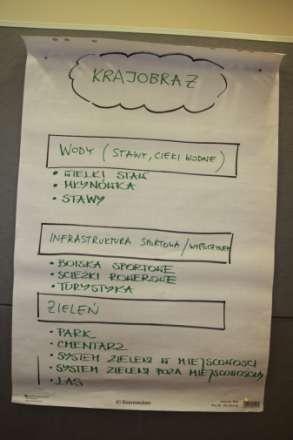 KRAJOBRAZ
WODY (STAWY, CIEKI WODNE)
• WIELKI STAW
• MŁYNÓWKA
• STAWY
INFRASTRUKTURA SPORTOWA/WYPOCZYNEK
• BOISKA SPORTOWE
• ŚCIEŻKI ROWEROWE
• TURYSTYKA
ZIELEŃ
• PARK
• CMENTARZ
• SYSTEM ZIELENI W MIEJSCOWOŚCI
• SYSTEM ZIELENI POZA MIEJSCOWOŚCIĄ
• LAS